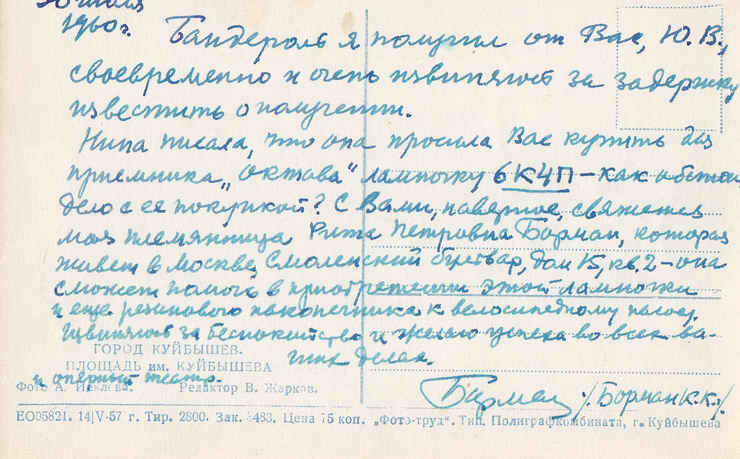 30 июля
1960 г. Бандероль я получил от Вас, Ю. В.,
своевременно и очень извиняюсь за задержку
известить о получении.
Нина писала, что она просила Вас купить для
приемника „Октава" лампочку 6К4П – как обстои
дело с ее покупкой? С Вами, наверное, свяжется
моя племянница Рита Петровна Борман, которая
живет в Москве, Смоленский бульвар, дом 15, кв. 2 – она
сможет помочь в приобретении этой лампочки
и еще резинового наконечника к велосипедному насосу.
Извиняюсь за беспокойство и желаю успеха во всех ва-
ших делах.
ГОРОД КУЙБЫШЕВ.
ПЛОЩАДЬ им. КУЙБЫШЕВА
и оперный театр.
Фото А. Редактор В. Жарков.
Борман /Борман К.К./
ЕО05821. 14/V-57 г. Тир. 2800. Зак. 3483. Цена 75 коп. „Фото-труд". Тип. Полиграфкомбината, г. Куйбышева